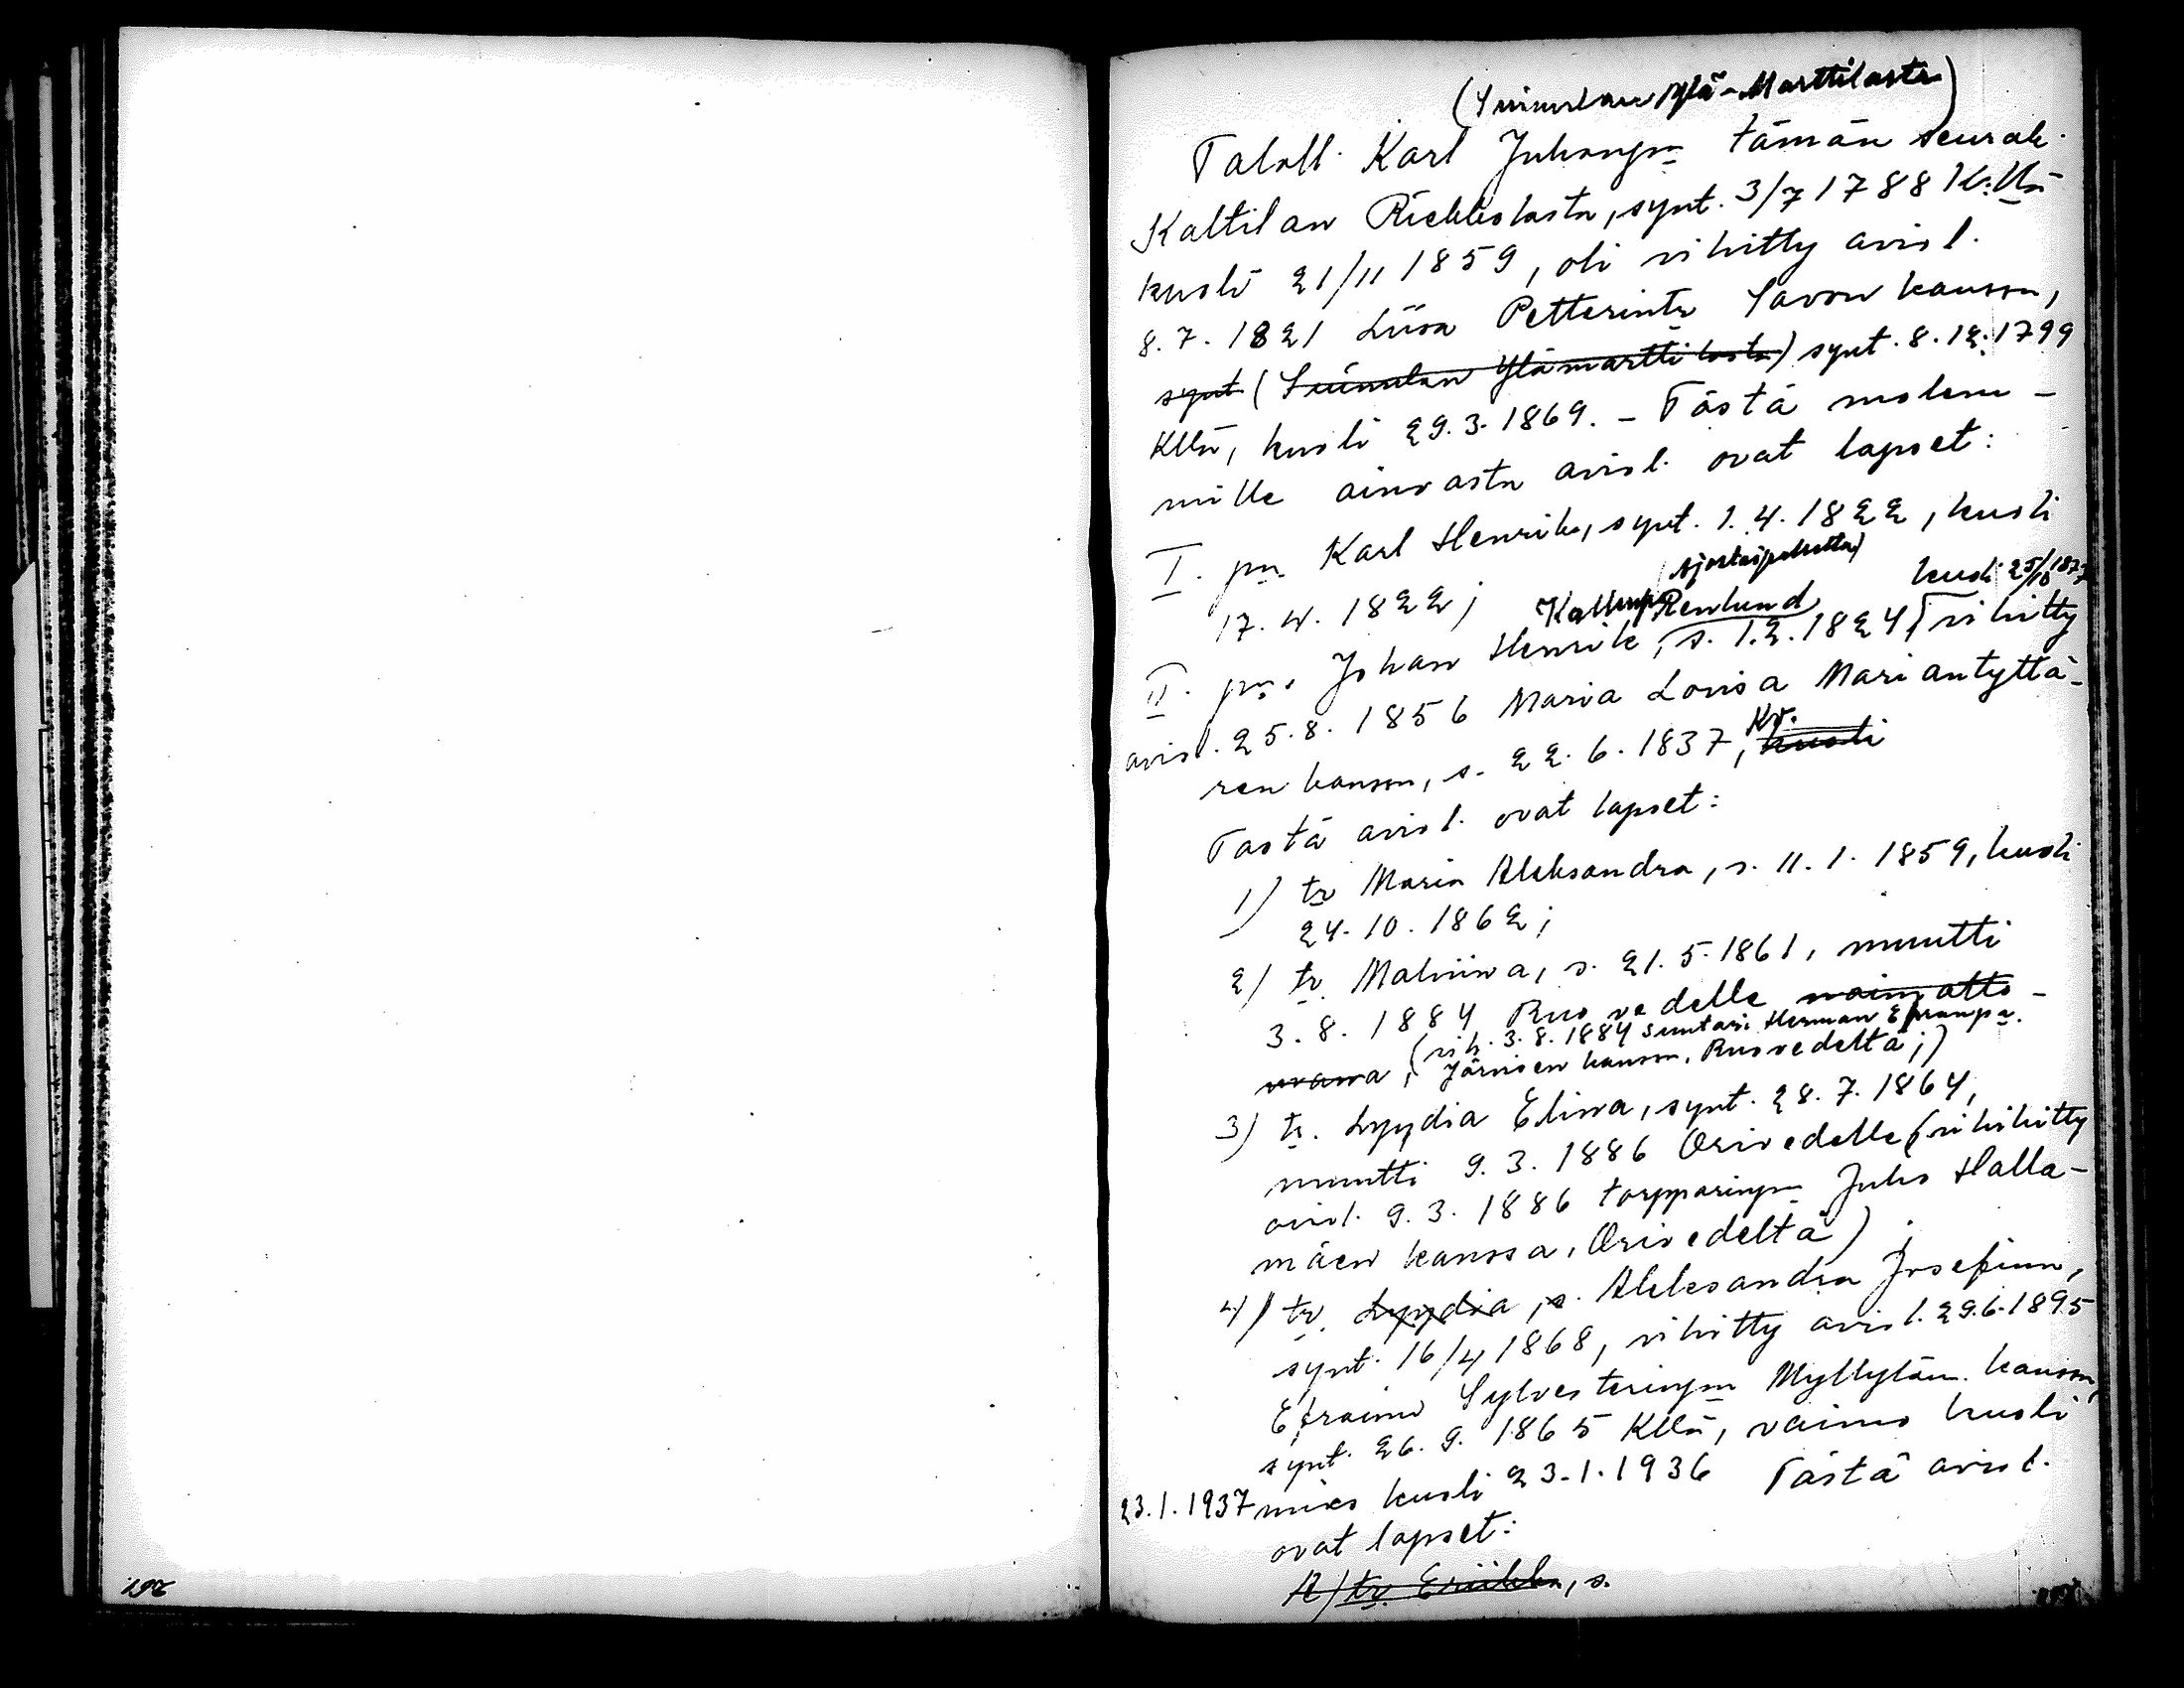 (Siinulan Ylä-Marttilasta)
Taloll. Karl Juhonpn tämän seurak.
Kaltilan Riekkolasta, synt. 3/7 1788 K:llä
kuoli 21/11 1859, oli vihitty aviol.
8.7.1821 Liisa Petterintr Savon kanssa,
synt (Siinulan Ylämarttilasta) synt. 8.12.1799
Kllä, kuoli 29.3.1869. – Tästä molem-
mille ainoasta aviol. ovat lapset:
I. pn. Karl Henrik, synt. 1.4.1822, kuoli
17.4.1822;
Renlund kuoli 25/10 1877
II. pn. Johan Henrik, s. 1.2.1824, vihitty
aviol. 25.8.1856 Maria Lovisa Mariantyttä-
Kv.
ren kanssa, s. 22.6.1837, kuoli
Tästä aviol. ovat lapset:
1) tr Maria Aleksandra, s. 11.1.1859, kuoli
24.10.1862;
2) tr. Malviina, s. 21.5.1861, muutti
3.8.1884 Ruovedelle naimatto-
(vih. 3.8.1884 suutari Herman Efraimpn.
mana, Järvisen kanssa, Ruovedeltä;)
3) tr. Lyydia Eliina, synt. 28.7.1864,
muutti 9.3.1886 Orivedelle (vihitty
aviol. 9.3.1886 torpparinpn Juho Halla-
mäen kanssa, Orivedeltä);
4) tr. Lyydia, s. Aleksandra Josefiina,
synt. 16/4 1868, vihitty aviol. 29.6.1895
Efraim Sylvesterinpn Myllylän kanssa,
synt. 26.9.1865 Kllä, vaimo kuoli
23.1.1937 mies kuoli 23.1.1936 Tästä aviol.
ovat lapset:
A) tr. Eriikka, s.
192